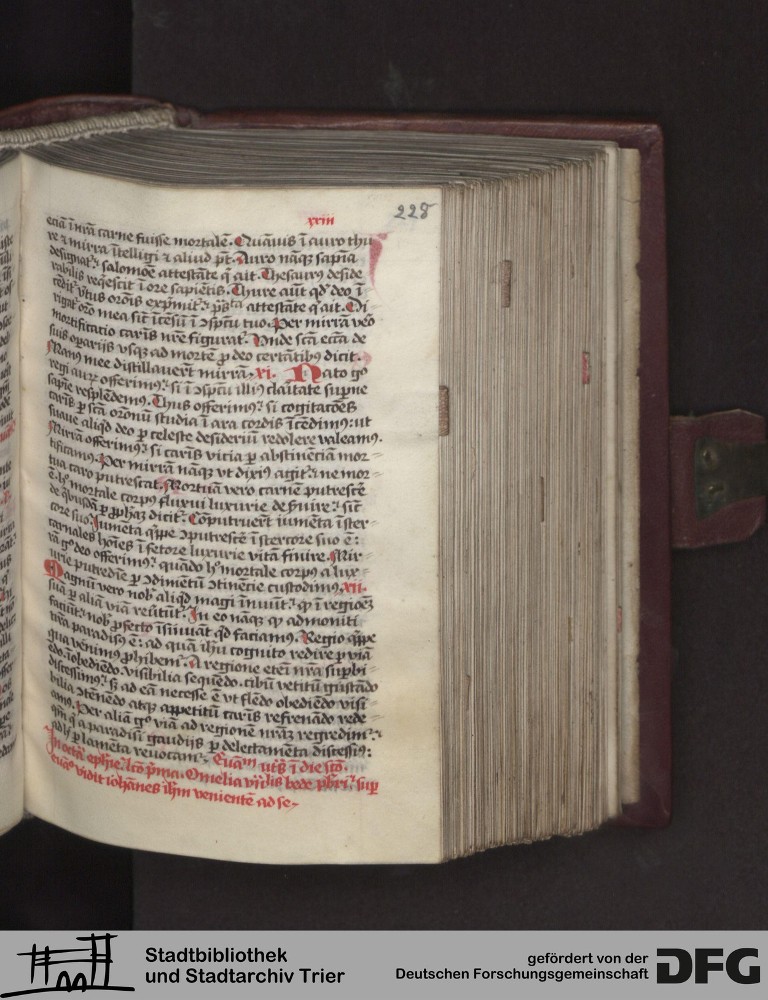 xxiii
228
eciā ī nr̄a carne fuisse mortalē. Quāuis ī auro thu
re ⁊ mirra ītelligi ⁊ aliud pt̄. Auro nāq̄ sapīa
designat᷑: salomōe attestāte q̄ ait. Thesaurꝰ deside
rabilis reqescit ī ore sapiētis. Thure aūt qd̓ deo ī
cēdit᷑ v̓tus orōis exprimit᷑: attestāte q̄ ait. Di
rigat᷑ orō mea sic̄ īcēsū ī ↄspc̄tu tuo. Per mirrā v̓o
mortificatio carīs nr̄e figurat᷑. Vnde sc̄a ecc̄a de
suis oꝑarijs vsq̄ ad mortē ꝓ deo certātibꝰ dicit.
Manꝰ mee distillauer̄t mirrā. xi. Nato gͦ
regi aurū offerimꝰ: si ī ↄspc̄tu illiꝰ claritate sup̄ne
sapīe resplēdemꝰ. Thus offerimꝰ: si cogitacōēs
carīs ꝑ sc̄a orōnū studia ī ara cordis īcēdimꝰ: ut
suaue aliqd̓ deo ꝑ celeste desideriū redolere valeamꝰ.
Mirrā offerimꝰ: si carīs vicia ꝑ abstinēciā mor-
tificamꝰ. Per mirrā nāq̄ vt dixiꝰ agit᷑: ne mor-
tua caro putrescat. Mortuā vero carnē putrescē
ē: hͦ mortale corpꝰ fluxui luxurie des̓uire: sic̄
de q̄busdā ꝑ ꝓph̄aꝫ dicit᷑. Cōputruer̄t iumēta ī ster-
core suo. Jumēta q̄ppe ↄputrescē ī stercore suo ē:
carnales hoīes ī fetore luxurie vitā finire. Mir-
rā gͦ deo offerimꝰ: quādo hͦ mortale corpꝰ a lux-
urie putredīe ꝑ ↄdimētū ↄtinēcie custodimꝰ. xii.
Magnū vero nob̄ aliqd̓ magi īnuūt: qͥ ī regiōeꝫ
suā ꝑ aliā viā reūtūt᷑. In eo nāq̄ qͥ admoniti
faciūt: nob̄ ꝓfecto īsinuāt qd̓ faciamꝰ. Regio q̄ppe
nr̄a paradisꝰ ē: ad quā ih̄u cognito redire ꝑ viā
qua venimꝰ ꝓhibem᷑. A regione etēī nr̄a suꝑbi-
ēdo īobediēdo: visibilia sequēdo. cibū vetitū gustādo
discessimꝰ: sꝫ ad eā necesse ē vt flēdo obediēdo visi-
bilia ↄtēnēdo atqꝫ appetitū carīs refrenādo rede-
amꝰ. Per aliā gͦ viā ad regionē nr̄aꝫ regredim᷑:
qm̄ q̄ a paradisi gaudijs ꝑ delectamēta discessiꝰ:
ad hͨ ꝑ lamēta reuocam᷑. Euāⁿ uts̄ ī die sc̄o.
In octa epīe. lcō p̄ma. Omelia vn̄lis bede pb̄ri. suꝑ
euāⁿ vidit iohānes ih̄m venientē ad se.
Stadtbibliothek
und Stadtarchiv Trier
gefördert von der
Deutschen Forschungsgemeinschaft
DFG